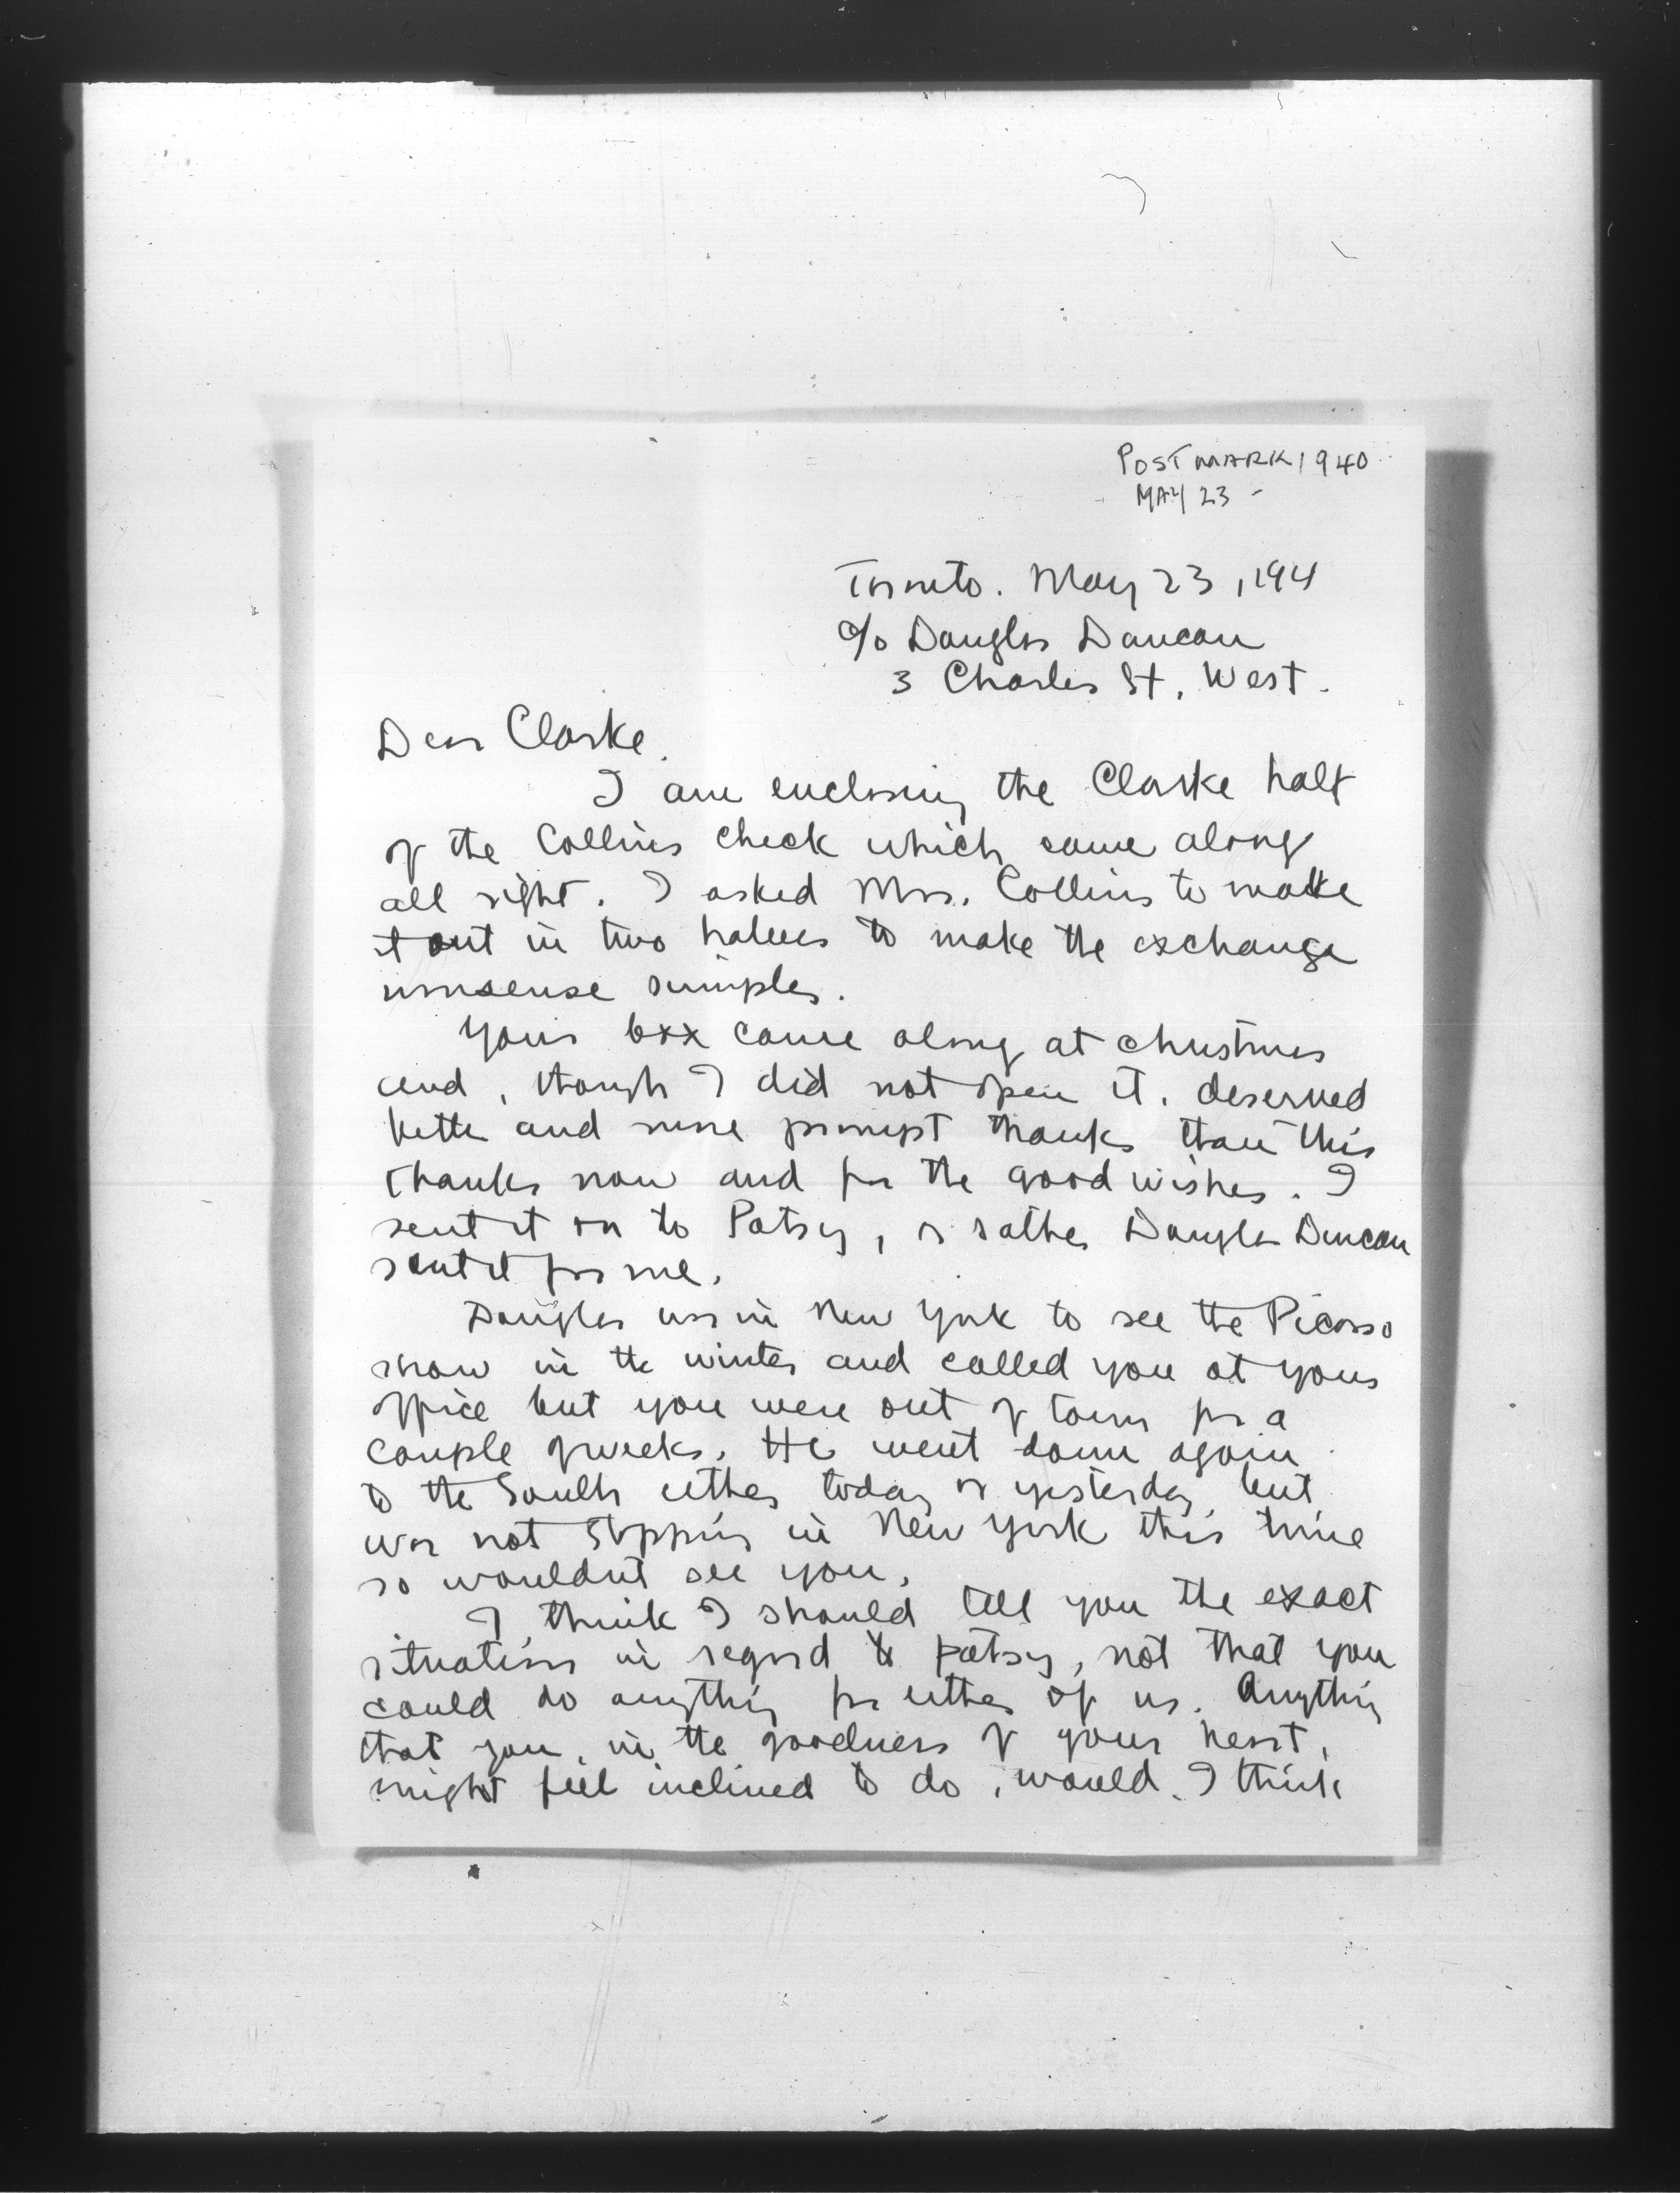 POSTMARK 1940
MAY 23 -
Toronto. May 23, 194
c/o Douglas Duncan
3 Charles St. West.
Dear Clarke.
I am enclosing the Clarke half
of the Collins check which came along
all right. I asked Mrs. Collins to make
it out in two halves to make the exchange
nonsense simpler.
Your box came along at christmas
and, though I did not open it, deserved
better and more prompt thanks than this
thanks now and for the good wishes. I
sent it on to Patsy, or rather Douglas Duncan
sent it for me.
Douglas was in New York to see the Picasso
show in the winter and called you at your
office but you were out of town for a
couple of weeks. He went down again
to the South either today or yesterday but
was not stopping in New York this time
so wouldnt see you.
I think I should tell you the exact
situation in regard to Patsy, not that you
could do anything for either of us. Anything
that you, in the goodness of your heart,
might feel inclined to do, would, I think